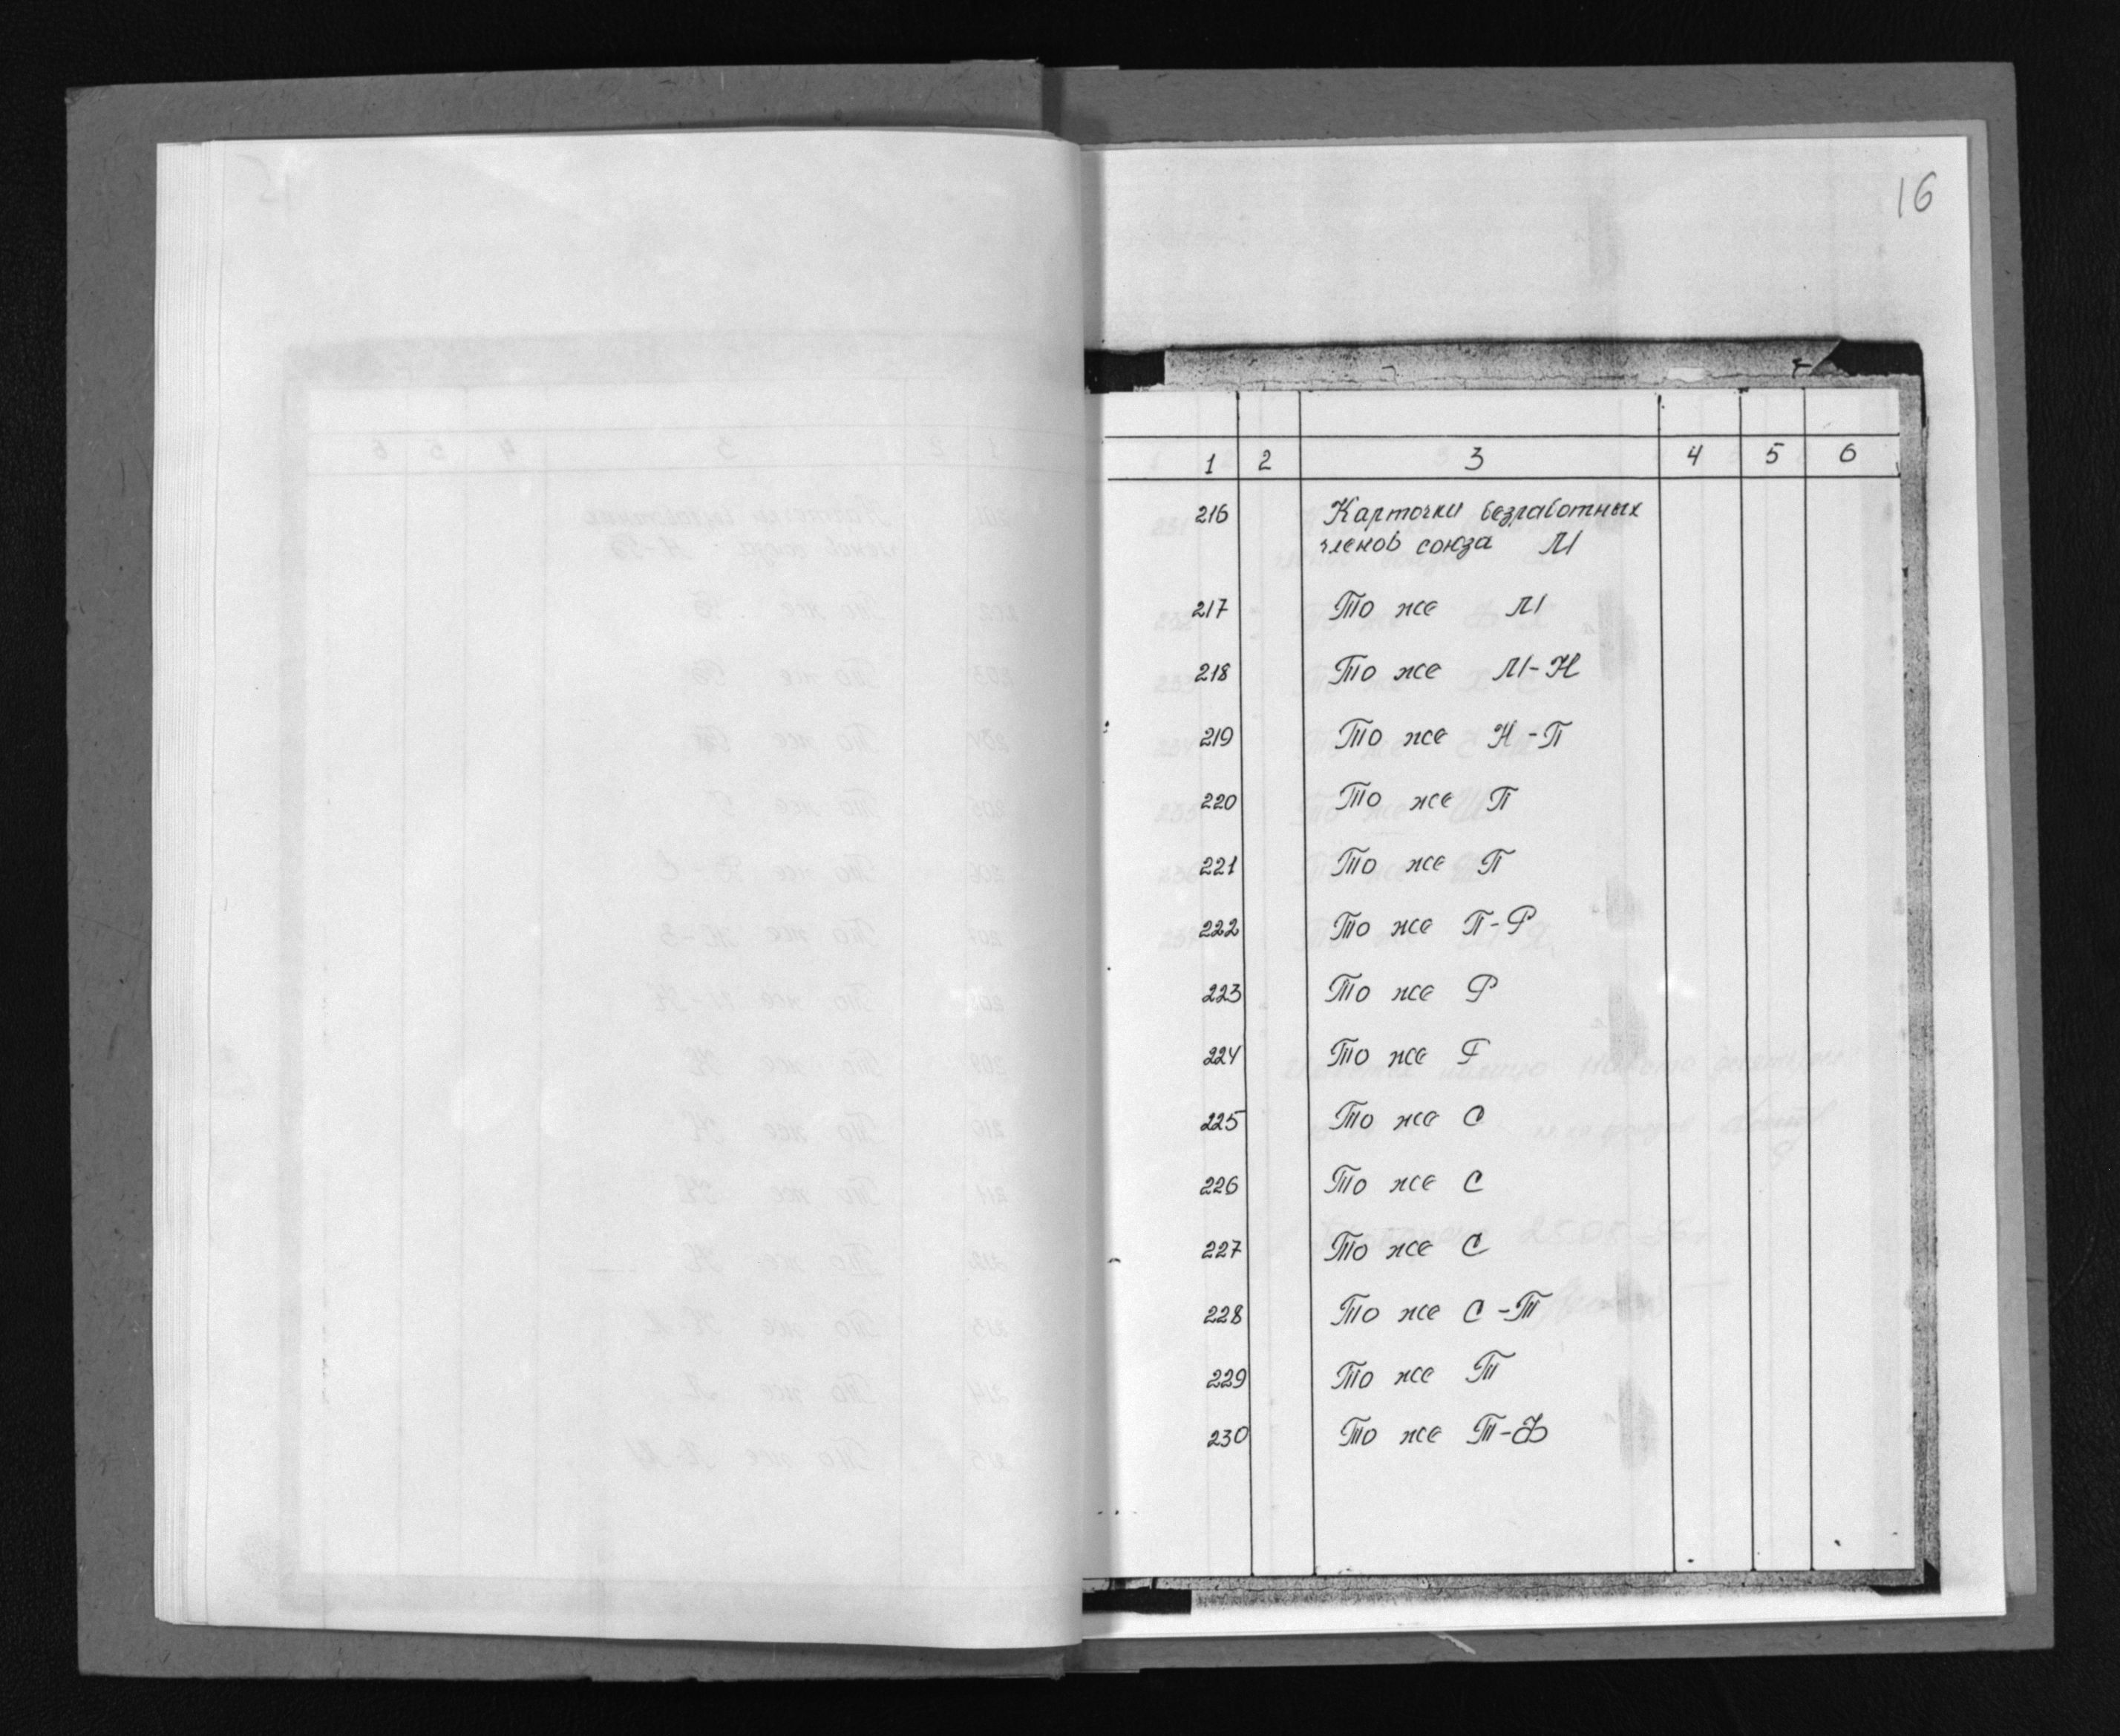 16
1 2 3 4 5 6
216 Карточки безработных
членов союза М
217 То же М
218 То же М-Н
219 То же Н-П
220 То же П
221 То же П
222 То же П-Р
223 То же Р
224 То же Г
225 То же С
226 То же С
227 То же С
228 То же С-Т
229 То же Т
230 То же Т-Ф